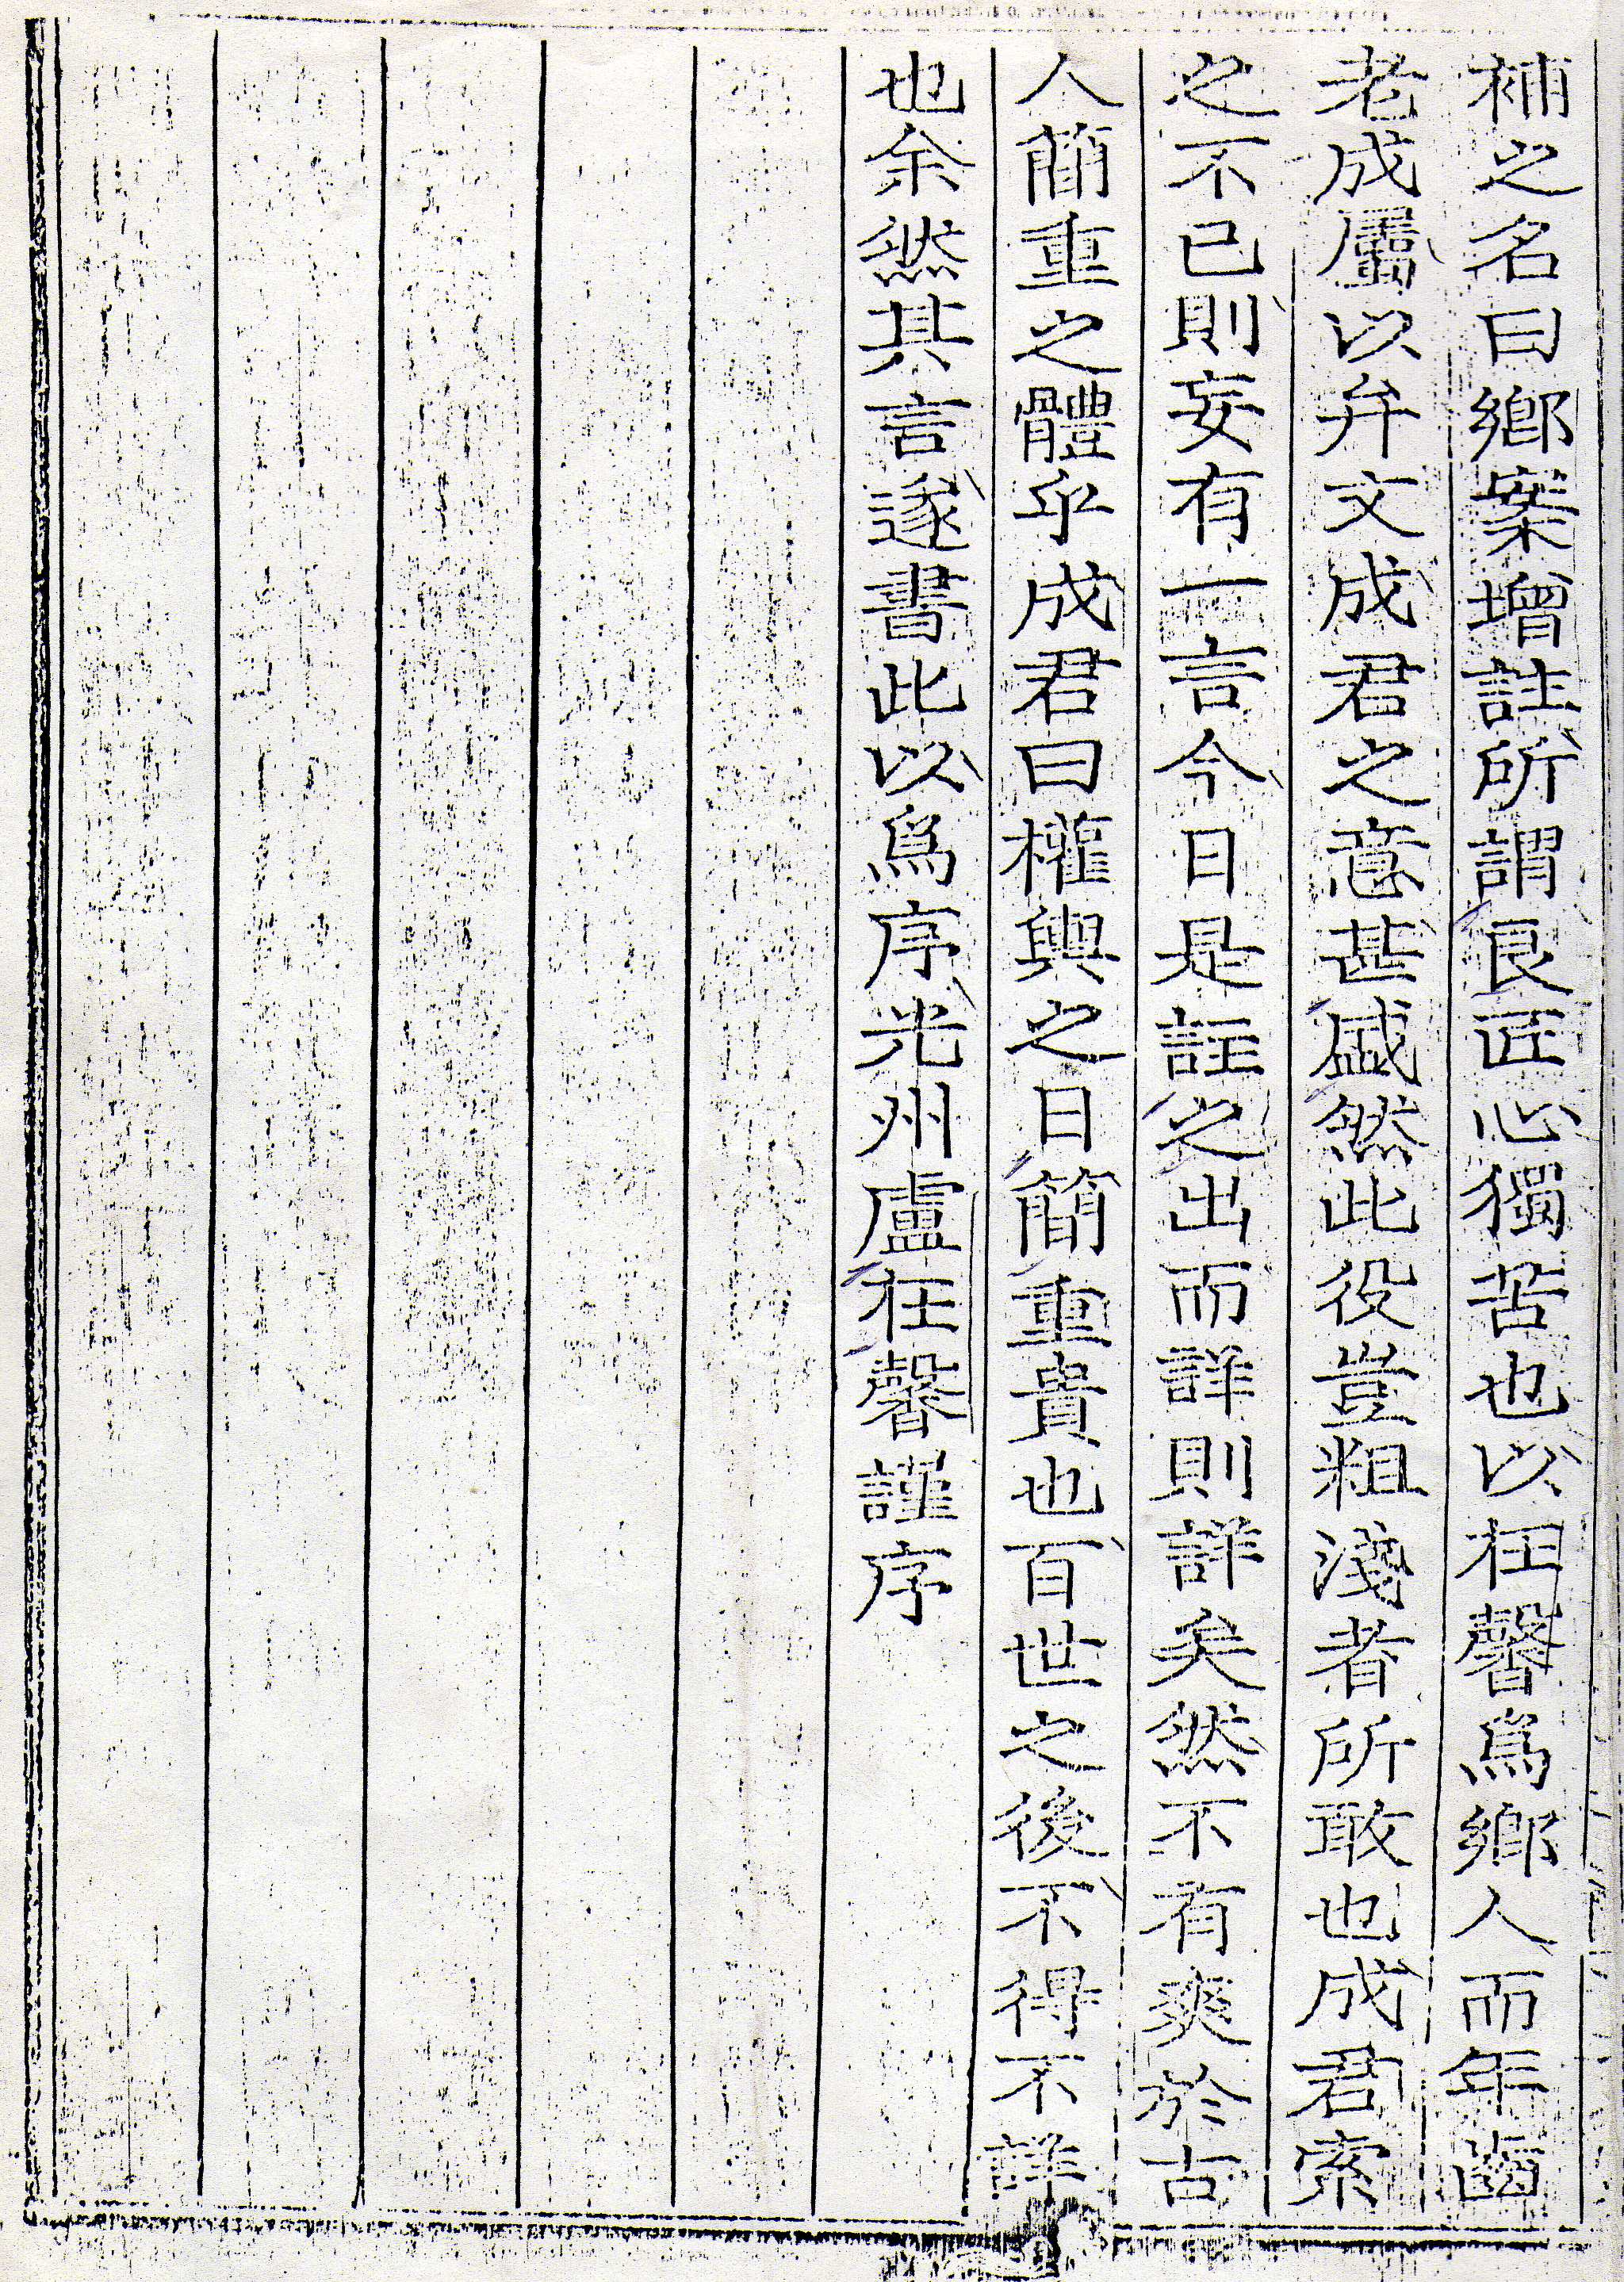 補之名曰鄉藥增註所謂良匠心獨苦也以在馨爲鄉人而年齒
老成屬以弁文成君之意甚盛然此役豈粗淺者所敢也成君索
之不已則妄有一言今日是註之出而詳則詳矣然不有爽於古
人簡重之體乎成君曰權輿之日簡重貴也百世之後不得不詳
也余然其言遂書此以爲序光州盧在馨謹序